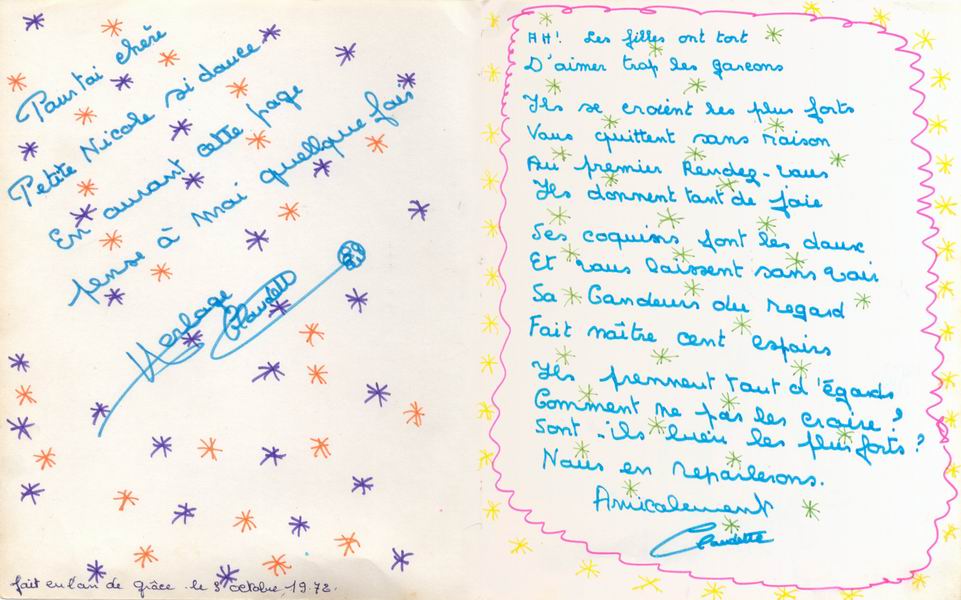 Pour toi chère
Petite Nicole si douce
En ouvrant cette page
pense à moi quelque fois
Claudette
fait en l'an de grâce le 8 octobre 1972.
AH! Les filles ont tort
D'aimer trop les garçons
Ils se croient les plus forts
Vous quittent sans raison
Au premier Rendez-vous
Ils donnent tant de joie
Ses coquins font les doux
Et vous laissent sans voix
Sa Candeur du regard
Fait naître cent espoirs
Ils prennent tout d'égards
Comment ne pas les croire?
Sont-ils bien les plus forts?
Nous en reparlerons.
Amicalement
Claudette